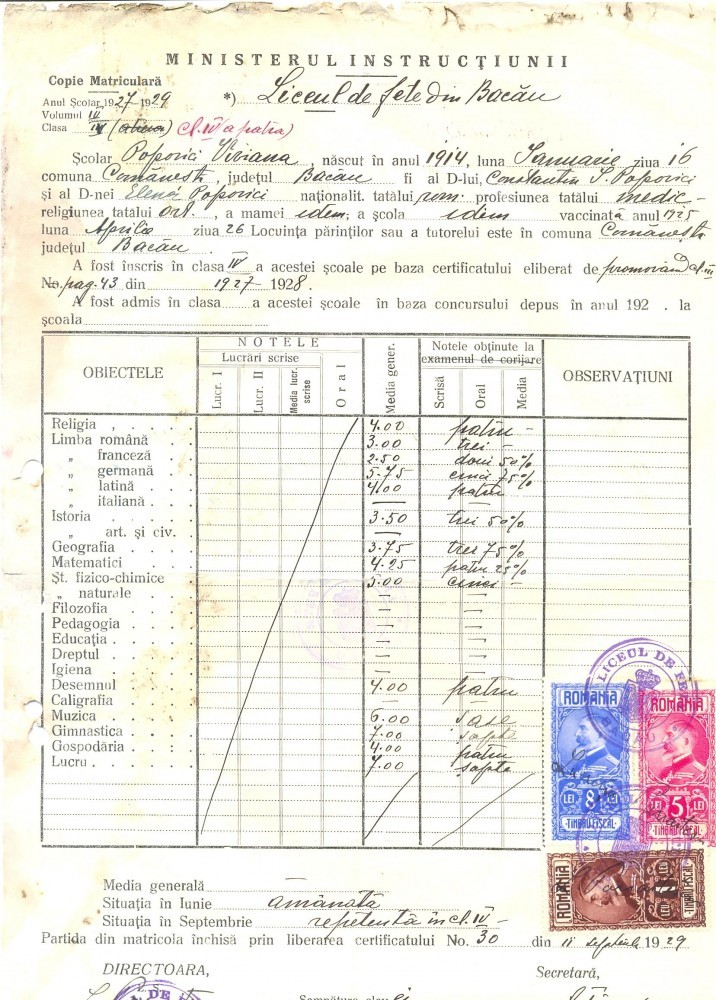 MINISTERUL INSTRUCȚIUNII
Copie Matriculară
Anul Școlar 1927 1929 *) Liceul de fete din Bacău
Volumul IV
Clasa IV cl. IV (a patra)
Școlar Popovici Viviana, născut în anul 1914, luna Ianuarie ziua 16
comuna Comănești, județul Bacău fi al D-lui, Constantin S. Popovici
și al D-nei Elena Popovici naționalit. tatălui rom. profesiunea tatălui medic -
religiunea tatălui Ort. , a mamei idem, a școla idem vaccinată anul 1925
luna Aprilie ziua 26 Locuința părinților sau a tutorelui este în comuna Comănești
județul Bacău .
A fost înscris în clasa IV a acestei școale pe baza certificatului eliberat de promovând cl. III
No. pag. 43 din 1927 - 1928.
A fost admis în clasa a acestei școale în baza concursului depus în anul 192 . la
școala
OBIECTELE
NOTELE
Lucrări scrise
Lucr. I
Lucr. II
Media lucr. scrise
Oral
Media gener.
Notele obținute la
examenul de corijare
Scrisă
Oral
Media
OBSERVAȚIUNI
Religia , . . . 4.00 patru -
Limba română . . 3.00 trei -
„ franceză . . 2.50 doui 50%
„ germană . . 5.75 cinci 75%
„ latină . . . 4.00 patru
„ italiană . . . —
Istoria . . . . . 3.50 trei 50%
„ art. și civ. . —
Geografia . . . . 3.75 trei 75%
Matematici . . . 4.25 patru 25%
Șt. fizico-chimice . 5.00 cinci -
„ naturale . . . — —
Filozofia . . . . — —
Pedagogia . . . . — —
Educația . . . . . — —
Dreptul . . . . . — —
Igiena . . . . . — —
Desemnul . . . . 4.00 patru
Caligrafia . . . . —
Muzica . . . . . 6.00 șase
Gimnastica . . . . 7.00 șapte
Gospodăria . . . . 4.00 patru
Lucru . . . . . . 7.00 șapte
LICEUL DE FE
ROMANIA
LEI 8 LEI
TIMBRU FISCAL
ROMANIA
LEI 5 LEI
TIMBRU FISCAL
ROMANIA
TIMBRU FISCAL
Media generală —
Situația în Iunie amânată
Situația în Septembrie repetentă în cl. IV -
Partida din matricola închisă prin liberarea certificatului No. 30 din 11 septembrie 1929
DIRECTOARA,
Secretară,
DE FE